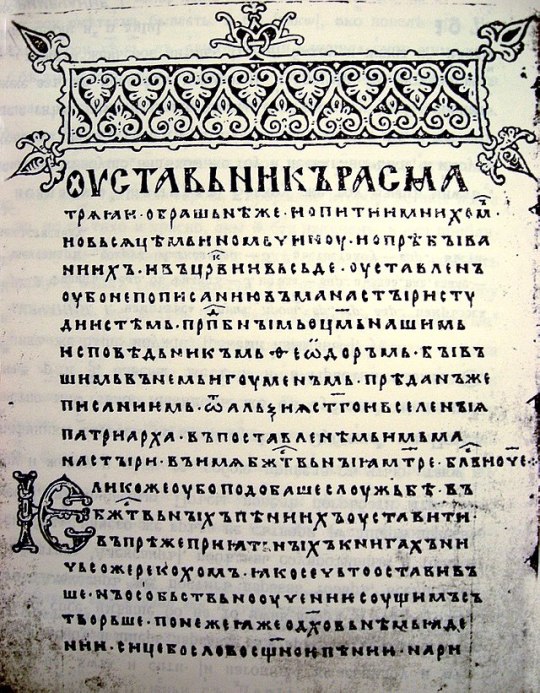 ОУСТАВЬНИКЪ РАСМА
ТРѦѨИ · О БРАШЬНѢ ЖЕ · И О ПИТИИ МНИХОМ҃
НОВЬСѦЦѢМЬ ИНОМЬ ЧИНОУ · И О ПРѢБЫВА
НИИХЪ · И ВЪ ЦР҃КВИ И ВЬСЬДЕ · ОУСТАВЛЕНЪ
ОУБО НЕ ПО ПИСАНИЮ ВЪ МАНАСТЫРИ СТУ
ДИИСТѢМЬ · ПРПⷣБНЫМЬ ОЦ҃МЬ НАШИМЬ
ИСПОВѢДЬНИКЪМЬ · ѲЕѠДОРЪМЬ · БЫВЪ
ШИИМЬ ВЪ НЕМЬ ИГОУМЕНЪМЬ · ПРѢДАНЪ ЖЕ
ПИСАНИЕМЬ · Ѿ АЛЬѮИѦ СТ҃ГО И ВЬСЕЛЕНЫѦ
ПАТРИАРХА · ВЪ ПОСТАВЛЕНѢМЬ ИМЬ МА
НАСТЫРИ · ВЪ ИМѦ БЖⷭТВЬНЫꙖ МТ҃РЕ · БЛⷭВИ ОЧ҃Е ·
ѤЛИКО ЖЕ ОУБО ПОДОБАШЕ СЛОУЖЬБѢ · ВЪ
БЖⷭТВЬНЫХЪ ПѢНИИХЪ ОУСТАВИТИ
ВЪ ПРѢЖЕ ПРИꙖТЬНЫХЪ КНИГАХЪ НИ
ЧЬСО ЖЕ РЕКОХОМЪ · ꙖКО СЕ ОСТАВИВЪ
ШЕ · НЪ ОСОБЬ СТВЬНО ОУЧЕНИЕ СОУЩИМЪ СЪ
ТВОРЬШЕ · ПОНЕЖЕ ꙖЖЕ О Д҃ХОВЬНѢМЬ ꙖДЕ
НИИ · СИЦЕ БО СЛОВО СЩ҃НО И ПѢНИИ · НАРИ